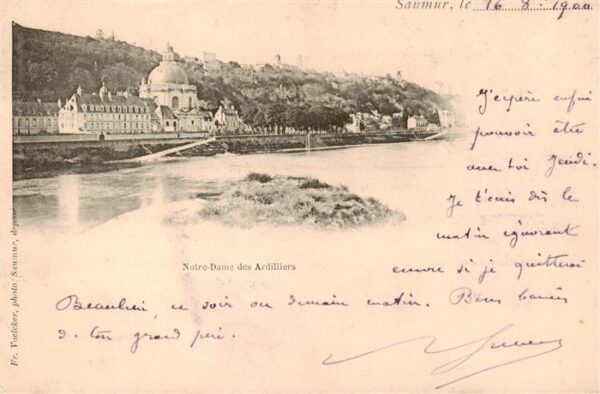 Saumur, le 16. 8. 1900
J'espère enfin
pouvoir être
avec toi Jeudi.
Je t'écris dès le
matin ignorant
encore si je quitterai
Notre-Dame des Ardilliers
Beaulieu, ce soir ou demain matin. Bons baisers
d. ton grand père.
Fr. Voelcker, photo, Saumur, déposé